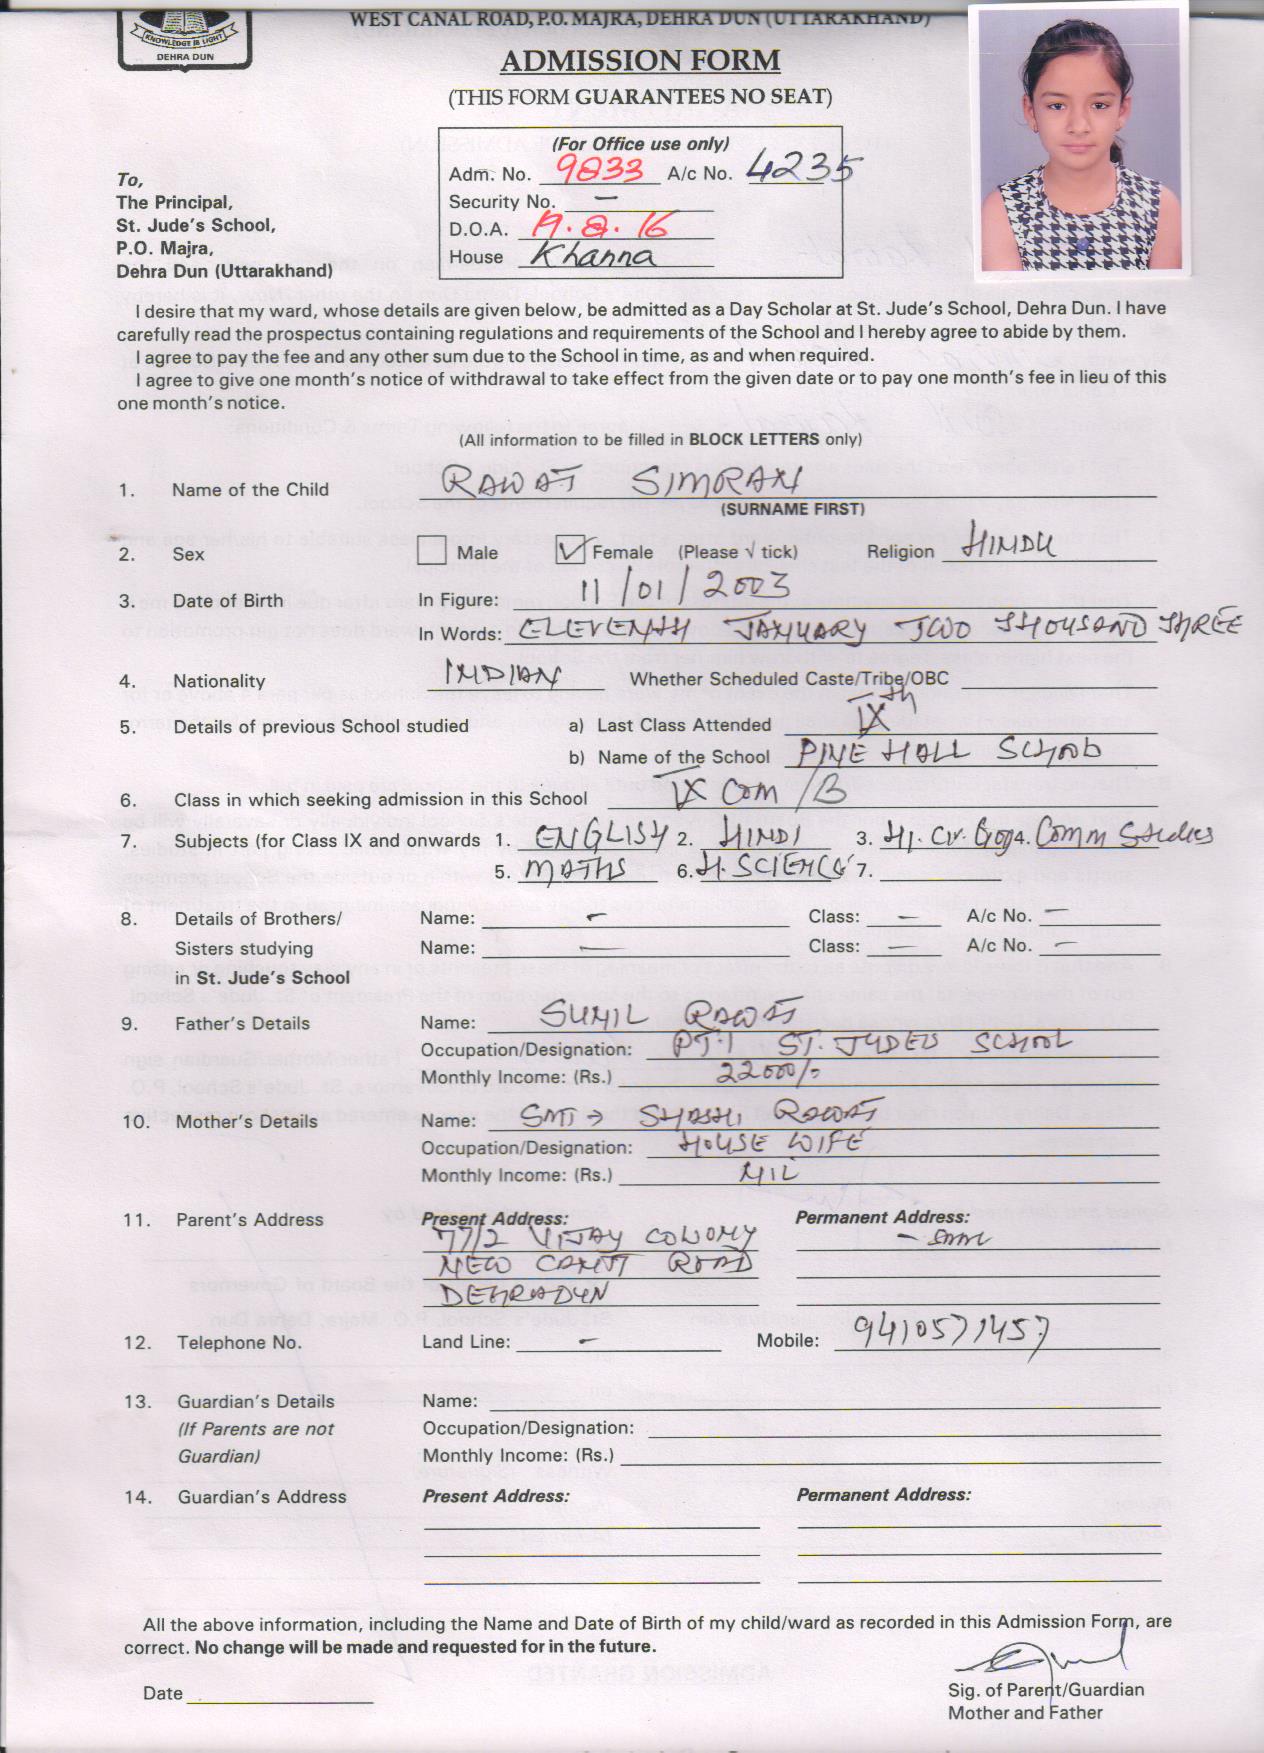 KNOWLEDGE IS LIGHT
DEHRA DUN
WEST CANAL ROAD, P.O. MAJRA, DEHRA DUN (UTTARAKHAND)
ADMISSION FORM
(THIS FORM GUARANTEES NO SEAT)
(For Office use only)
Adm. No. 9833 A/c No. 4235
Security No. —
D.O.A. 17.8.16
House Khanna
To,
The Principal,
St. Jude's School,
P.O. Majra,
Dehra Dun (Uttarakhand)
I desire that my ward, whose details are given below, be admitted as a Day Scholar at St. Jude's School, Dehra Dun. I have
carefully read the prospectus containing regulations and requirements of the School and I hereby agree to abide by them.
I agree to pay the fee and any other sum due to the School in time, as and when required.
I agree to give one month's notice of withdrawal to take effect from the given date or to pay one month's fee in lieu of this
one month's notice.
(All information to be filled in BLOCK LETTERS only)
1. Name of the Child RAWAT SIMRAN
(SURNAME FIRST)
2. Sex Male ✓ Female (Please √ tick) Religion HINDU
3. Date of Birth In Figure: 11/01/2003
In Words: ELEVENTH JANUARY TWO THOUSAND THREE
4. Nationality INDIAN Whether Scheduled Caste/Tribe/OBC
5. Details of previous School studied a) Last Class Attended IXth
b) Name of the School PINE HALL SCHOOL
6. Class in which seeking admission in this School IX Com /B
7. Subjects (for Class IX and onwards 1. ENGLISH 2. HINDI 3. H. Cv. Geog 4. Comm Studies
5. MATHS 6. H. SCIENCE 7.
8. Details of Brothers/ Name: — Class: — A/c No. —
Sisters studying Name: — Class: — A/c No. —
in St. Jude's School
9. Father's Details Name: SUNIL RAWAT
Occupation/Designation: PTI ST. JUDES SCHOOL
Monthly Income: (Rs.) 22000/-
10. Mother's Details Name: SMT → SHASHI RAWAT
Occupation/Designation: HOUSE WIFE
Monthly Income: (Rs.) NIL
11. Parent's Address Present Address: Permanent Address:
77/2 VIJAY COLONY - same
NEW CANTT ROAD
DEHRADUN
12. Telephone No. Land Line: — Mobile: 9410571457
13. Guardian's Details Name:
(If Parents are not Occupation/Designation:
Guardian) Monthly Income: (Rs.)
14. Guardian's Address Present Address: Permanent Address:
All the above information, including the Name and Date of Birth of my child/ward as recorded in this Admission Form, are
correct. No change will be made and requested for in the future.
Date
Sig. of Parent/Guardian
Mother and Father